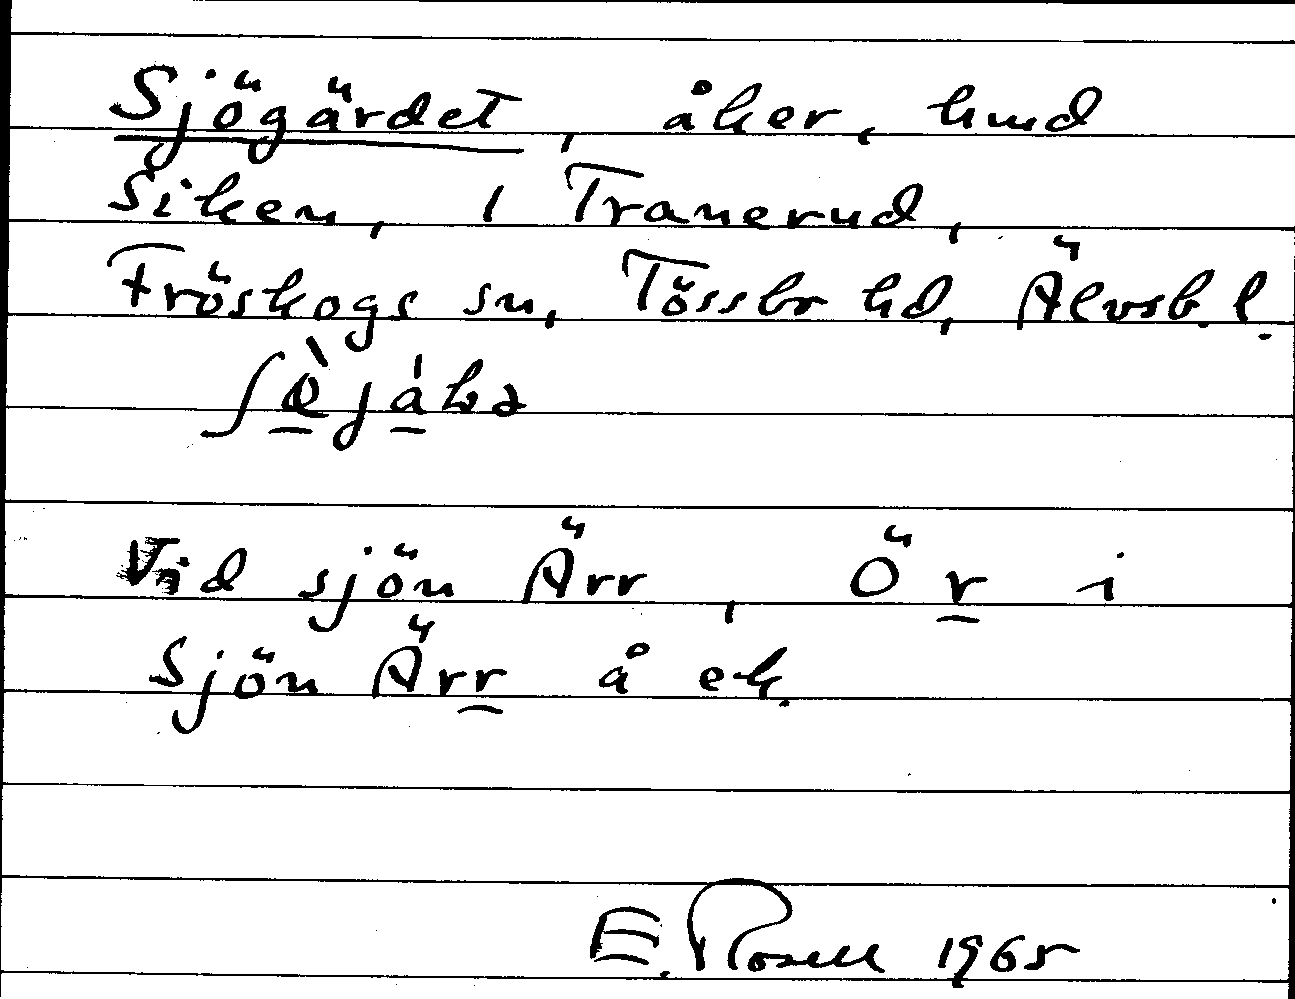 Sjögärdet, åker, hmd
Siken, i Tranerud,
Fröskogs sn, Tössbo hd, Älvsb. l.
Vid sjön Ärr, Ör i
Sjön Ärr å ek.
E. Rosell 1965